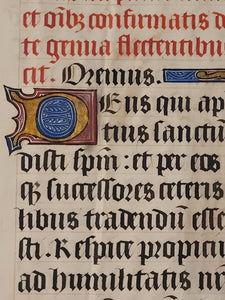 et oībz confirmatis d
te genua flectentibu
cit. Oremus.
Deus qui ap
tius sanctū
disti spm̄: et per eos
q̄ successores ceteris
libus tradendū esse
sti. Respice propiciu
ad humilitatis nr̄